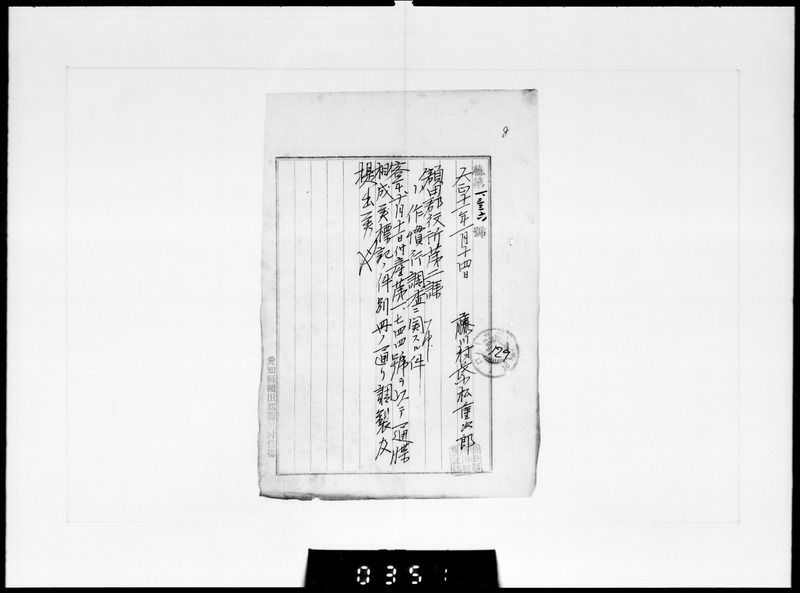 8
藤第一、三六號
大正十一年一月十四日
藤川村長 小松重次郎
額田郡役所第二課 御中
小作慣行調査ニ関スル件
客年十月十日付産第一、七四四號ヲ以テ通牒
相成候標記ノ件別冊ノ通リ調製及
提出候
愛知縣額田郡藤川村役場
124
0351